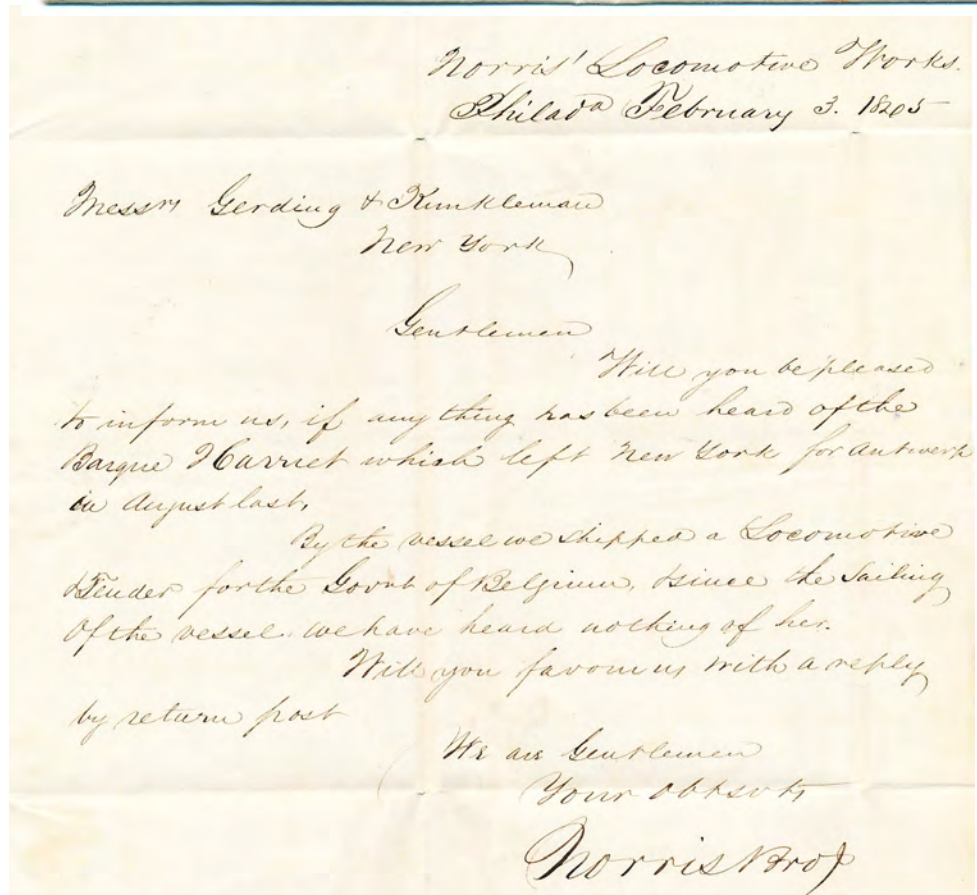 Norris' Locomotive Works.
Philada February 3. 1845
Messrs Gerding & Kunkleman
New York
Gentlemen
Will you be pleased
to inform us, if any thing has been heard of the
Barque Harriet which left New York for Antwerp
in August last,
By the vessel we shipped a Locomotive
& Tender for the Govnt of Belgium, & since the Sailing
Of the vessel we have heard nothing of her.
Will you favour us with a reply
by return post
We are Gentlemen
Your Obt Svts
Norris Bros